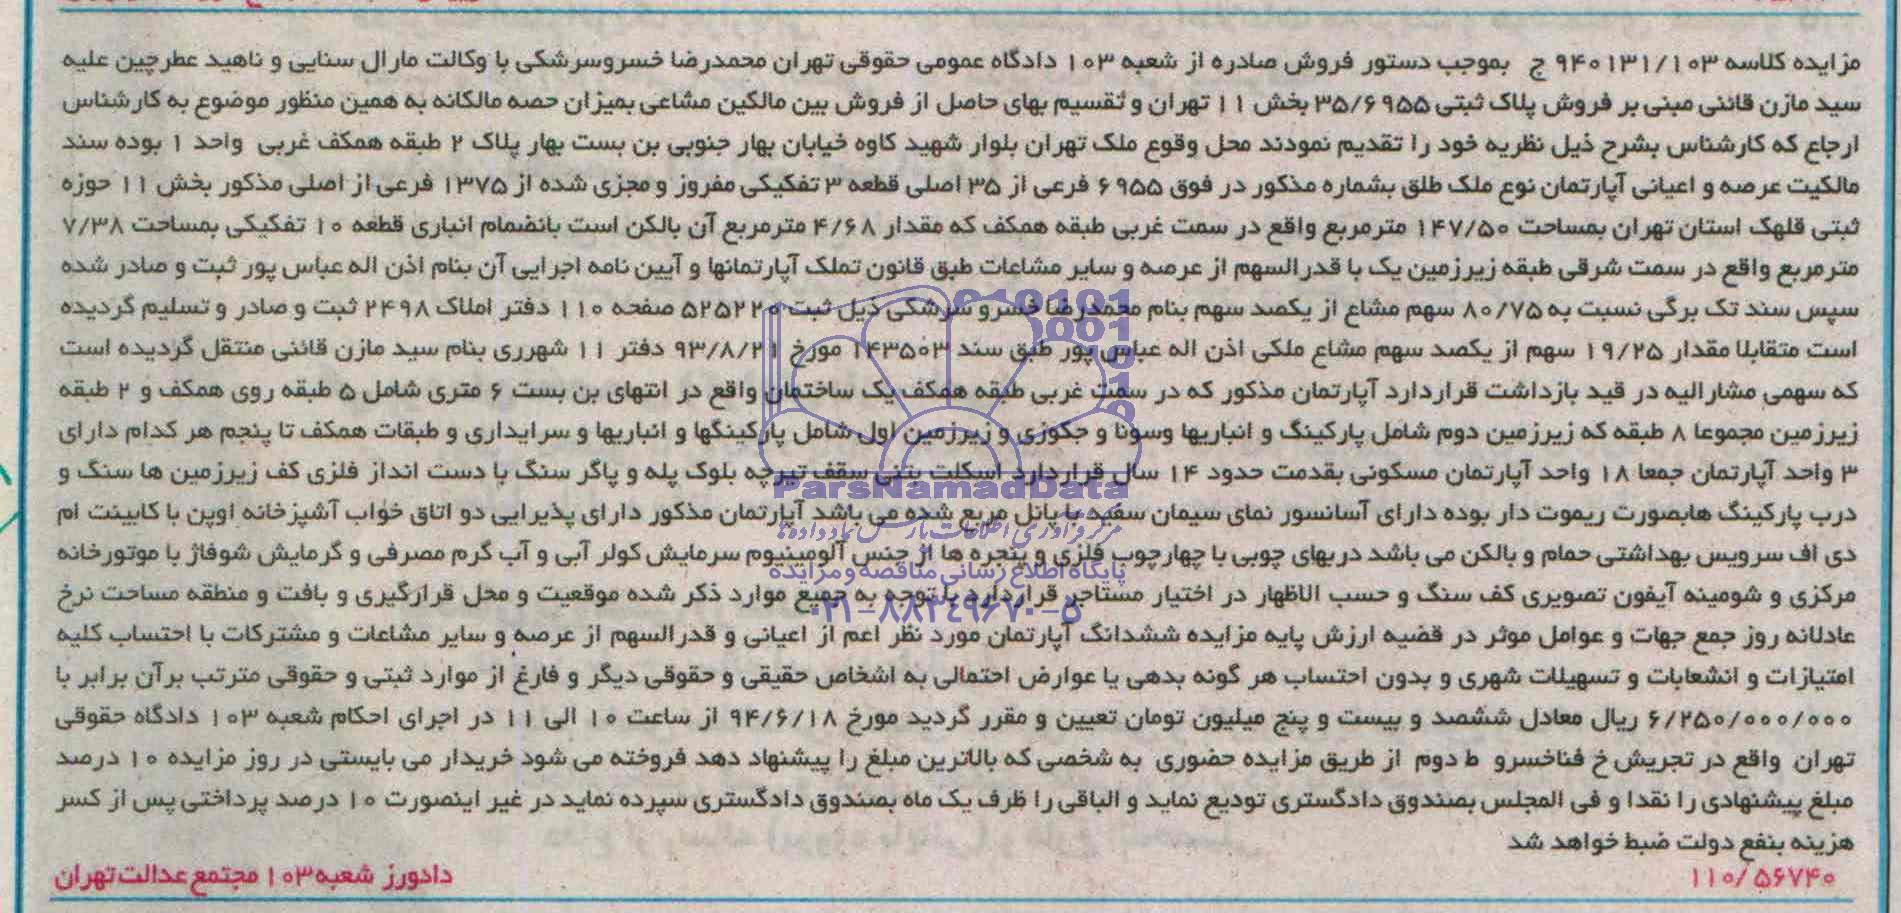 مزایده کلاسه ۹۴۰۱۳۱/۱۰۳ ج بموجب دستور فروش صادره از شعبه ۱۰۳ دادگاه عمومی حقوقی تهران محمدرضا خسروسرشکی با وکالت مارال سنایی و ناهید عطرچین علیه
سید مازن قائنی مبنی بر فروش پلاک ثبتی ۳۵/۶۹۵۵ بخش ۱۱ تهران و تقسیم بهای حاصل از فروش بین مالکین مشاعی بمیزان حصه مالکانه به همین منظور موضوع به کارشناس
ارجاع که کارشناس بشرح ذیل نظریه خود را تقدیم نمودند محل وقوع ملک تهران بلوار شهید کاوه خیابان بهار جنوبی بن بست بهار پلاک ۲ طبقه همکف غربی واحد ۱ بوده سند
مالکیت عرصه و اعیانی آپارتمان نوع ملک طلق بشماره مذکور در فوق ۶۹۵۵ فرعی از ۳۵ اصلی قطعه ۳ تفکیکی مفروز و مجزی شده از ۱۳۷۵ فرعی از اصلی مذکور بخش ۱۱ حوزه
ثبتی قلهک استان تهران بمساحت ۱۴۷/۵۰ مترمربع واقع در سمت غربی طبقه همکف که مقدار ۴/۶۸ مترمربع آن بالکن است بانضمام انباری قطعه ۱۰ تفکیکی بمساحت ۷/۳۸
مترمربع واقع در سمت شرقی طبقه زیرزمین یک با قدرالسهم از عرصه و سایر مشاعات طبق قانون تملک آپارتمانها و آیین نامه اجرایی آن بنام اذن اله عباس پور ثبت و صادر شده
سپس سند تک برگی نسبت به ۸۰/۷۵ سهم مشاع از یکصد سهم بنام محمدرضا خسرو سرشکی ذیل ثبت ۵۲۵۲۲۰ صفحه ۱۱۰ دفتر املاک ۲۴۹۸ ثبت و صادر و تسلیم گردیده
است متقابلا مقدار ۱۹/۲۵ سهم از یکصد سهم مشاع ملکی اذن اله عباس پور طبق سند ۱۴۳۵۰۳ مورخ ۹۳/۸/۲۱ دفتر ۱۱ شهرری بنام سید مازن قائنی منتقل گردیده است
که سهمی مشارالیه در قید بازداشت قراردارد آپارتمان مذکور که در سمت غربی طبقه همکف یک ساختمان واقع در انتهای بن بست ۶ متری شامل ۵ طبقه روی همکف و ۲ طبقه
زیرزمین مجموعا ۸ طبقه که زیرزمین دوم شامل پارکینگ و انباریها وسونا و جکوزی و زیرزمین اول شامل پارکینگها و انباریها و سرایداری و طبقات همکف تا پنجم هر کدام دارای
۳ واحد آپارتمان جمعا ۱۸ واحد آپارتمان مسکونی بقدمت حدود ۱۴ سال قراردارد اسکلت بتنی سقف تیرچه بلوک پله و پاگر سنگ با دست انداز فلزی کف زیرزمین ها سنگ و
درب پارکینگ هابصورت ریموت دار بوده دارای آسانسور نمای سیمان سفید با پانل مربع شده می باشد آپارتمان مذکور دارای پذیرایی دو اتاق خواب آشپزخانه اوپن با کابینت ام
دی اف سرویس بهداشتی حمام و بالکن می باشد دربهای چوبی با چهارچوب فلزی و پنجره ها از جنس آلومینیوم سرمایش کولر آبی و آب گرم مصرفی و گرمایش شوفاژ با موتورخانه
مرکزی و شومینه آیفون تصویری کف سنگ و حسب الاظهار در اختیار مستاجر قراردارد با توجه به جمیع موارد ذکر شده موقعیت و محل قرارگیری و بافت و منطقه مساحت نرخ
عادلانه روز جمع جهات و عوامل موثر در قضیه ارزش پایه مزایده ششدانگ آپارتمان مورد نظر اعم از اعیانی و قدرالسهم از عرصه و سایر مشاعات و مشترکات با احتساب کلیه
امتیازات و انشعابات و تسهیلات شهری و بدون احتساب هر گونه بدهی یا عوارض احتمالی به اشخاص حقیقی و حقوقی دیگر و فارغ از موارد ثبتی و حقوقی مترتب برآن برابر با
۶/۲۵۰/۰۰۰/۰۰۰ ریال معادل ششصد و بیست و پنج میلیون تومان تعیین و مقرر گردید مورخ ۹۴/۶/۱۸ از ساعت ۱۰ الی ۱۱ در اجرای احکام شعبه ۱۰۳ دادگاه حقوقی
تهران واقع در تجریش خ فناخسرو ط دوم از طریق مزایده حضوری به شخصی که بالاترین مبلغ را پیشنهاد دهد فروخته می شود خریدار می بایستی در روز مزایده ۱۰ درصد
مبلغ پیشنهادی را نقدا و فی المجلس بصندوق دادگستری تودیع نماید و الباقی را ظرف یک ماه بصندوق دادگستری سپرده نماید در غیر اینصورت ۱۰ درصد پرداختی پس از کسر
هزینه بنفع دولت ضبط خواهد شد
۱۱۰/۵۶۷۴۰
دادورز شعبه ۱۰۳ مجتمع عدالت تهران
ParsNamadData
مرکز فرآوری اطلاعات پارس نماد داده ها
پایگاه اطلاع رسانی مناقصه و مزایده
۰۲۱-۸۸۳۴۹۶۷۰-۵